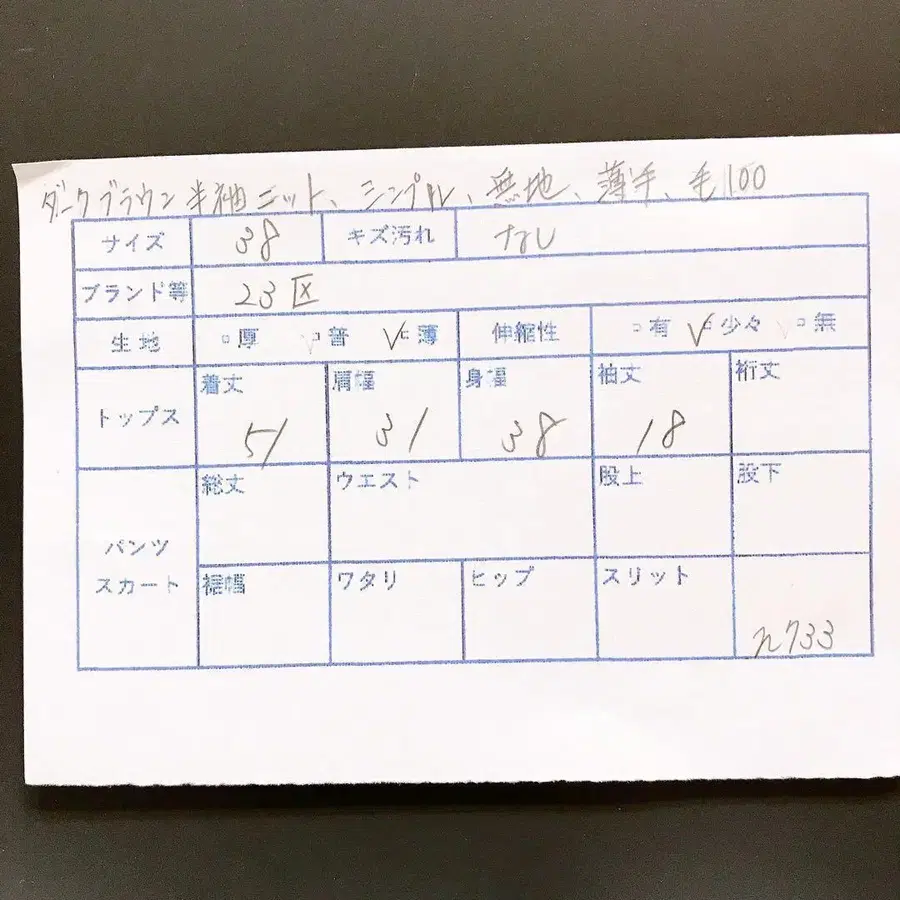 ダークブラウン半袖ニット、シンプル、無地、薄手、毛100
サイズ 38 キズ汚れ なし
ブランド等 23区
生地 □厚 □普 ✓□薄 伸縮性 □有 ✓□少々 □無
トップス 着丈 51 肩幅 31 身幅 38 袖丈 18 裄丈
パンツ スカート 総丈 ウエスト 股上 股下
裾幅 ワタリ ヒップ スリット
え733